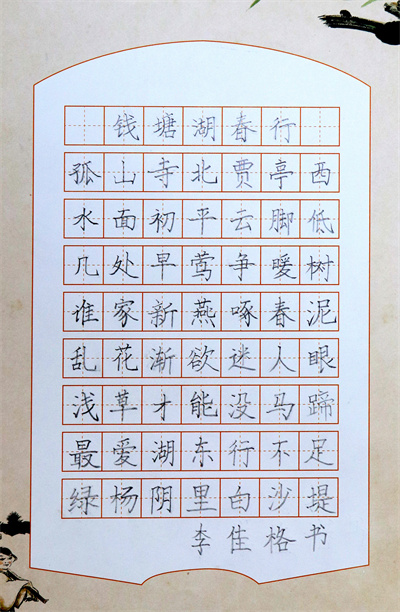 钱塘湖春行
孤山寺北贾亭西
水面初平云脚低
几处早莺争暖树
谁家新燕啄春泥
乱花渐欲迷人眼
浅草才能没马蹄
最爱湖东行不足
绿杨阴里白沙堤
李佳格书